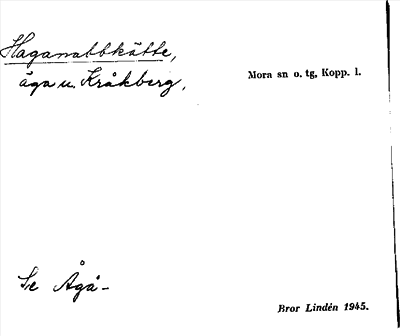 Haganabbkätte,
äga u. Kråkberg,
Mora sn o. tg, Kopp. l.
Se Ågå-
Bror Lindén 1945.